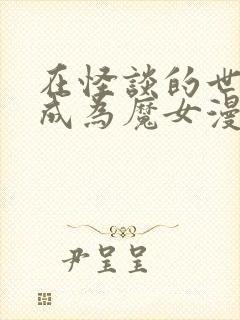 在怪談的世
成為魔女漫
尹呈呈